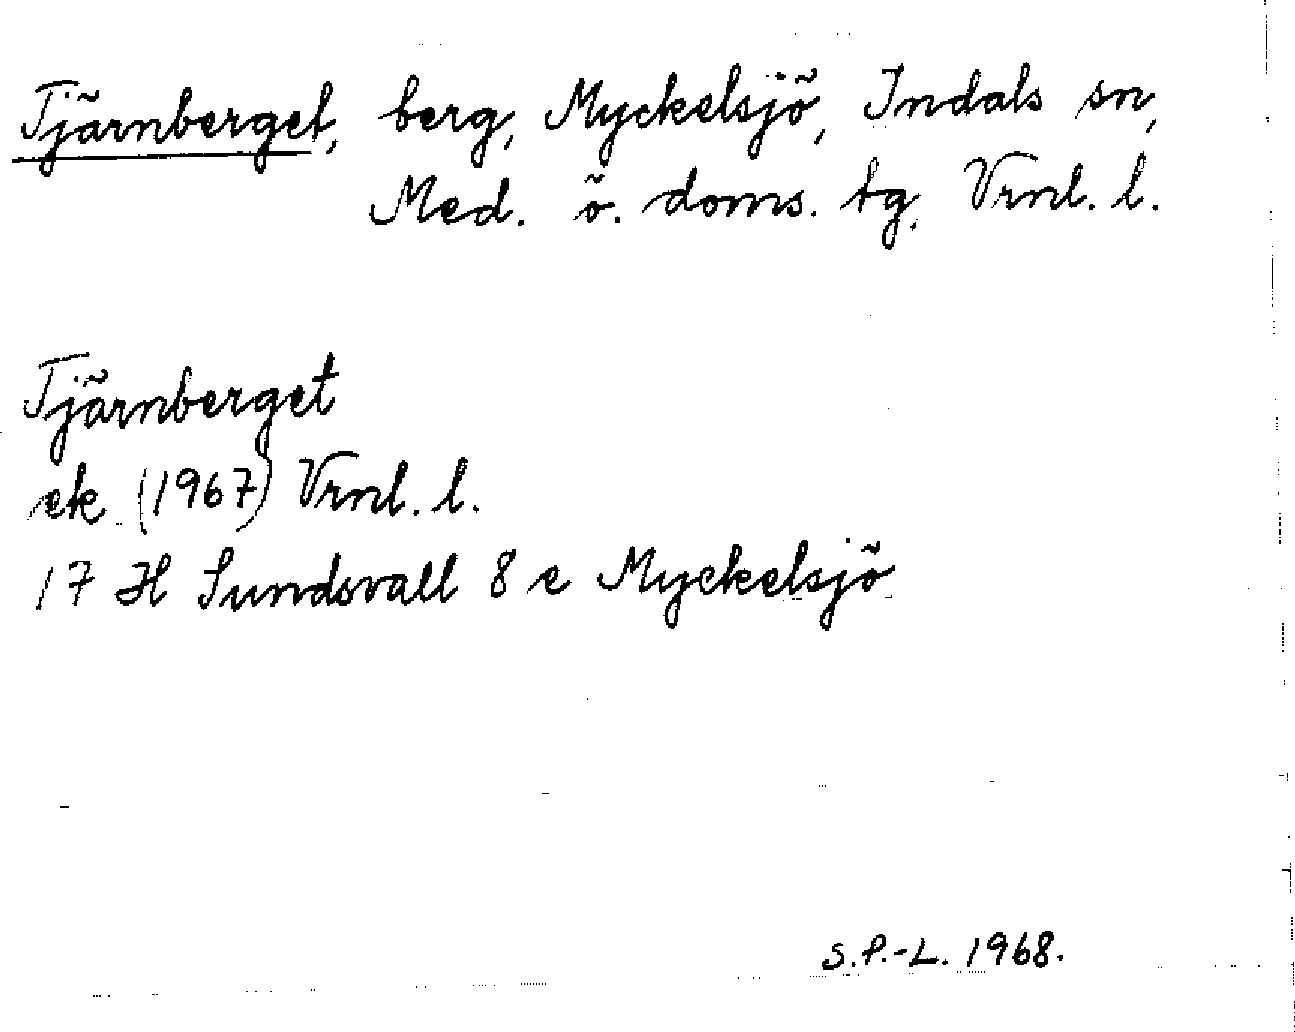 Tjärnberget, berg, Myckelsjö, Indals sn,
Med. ö. doms. tg, Vrnl. l.
Tjärnberget
ek (1967) Vrnl. l.
17 H Sundsvall 8 e Myckelsjö
S.P.-L. 1968.